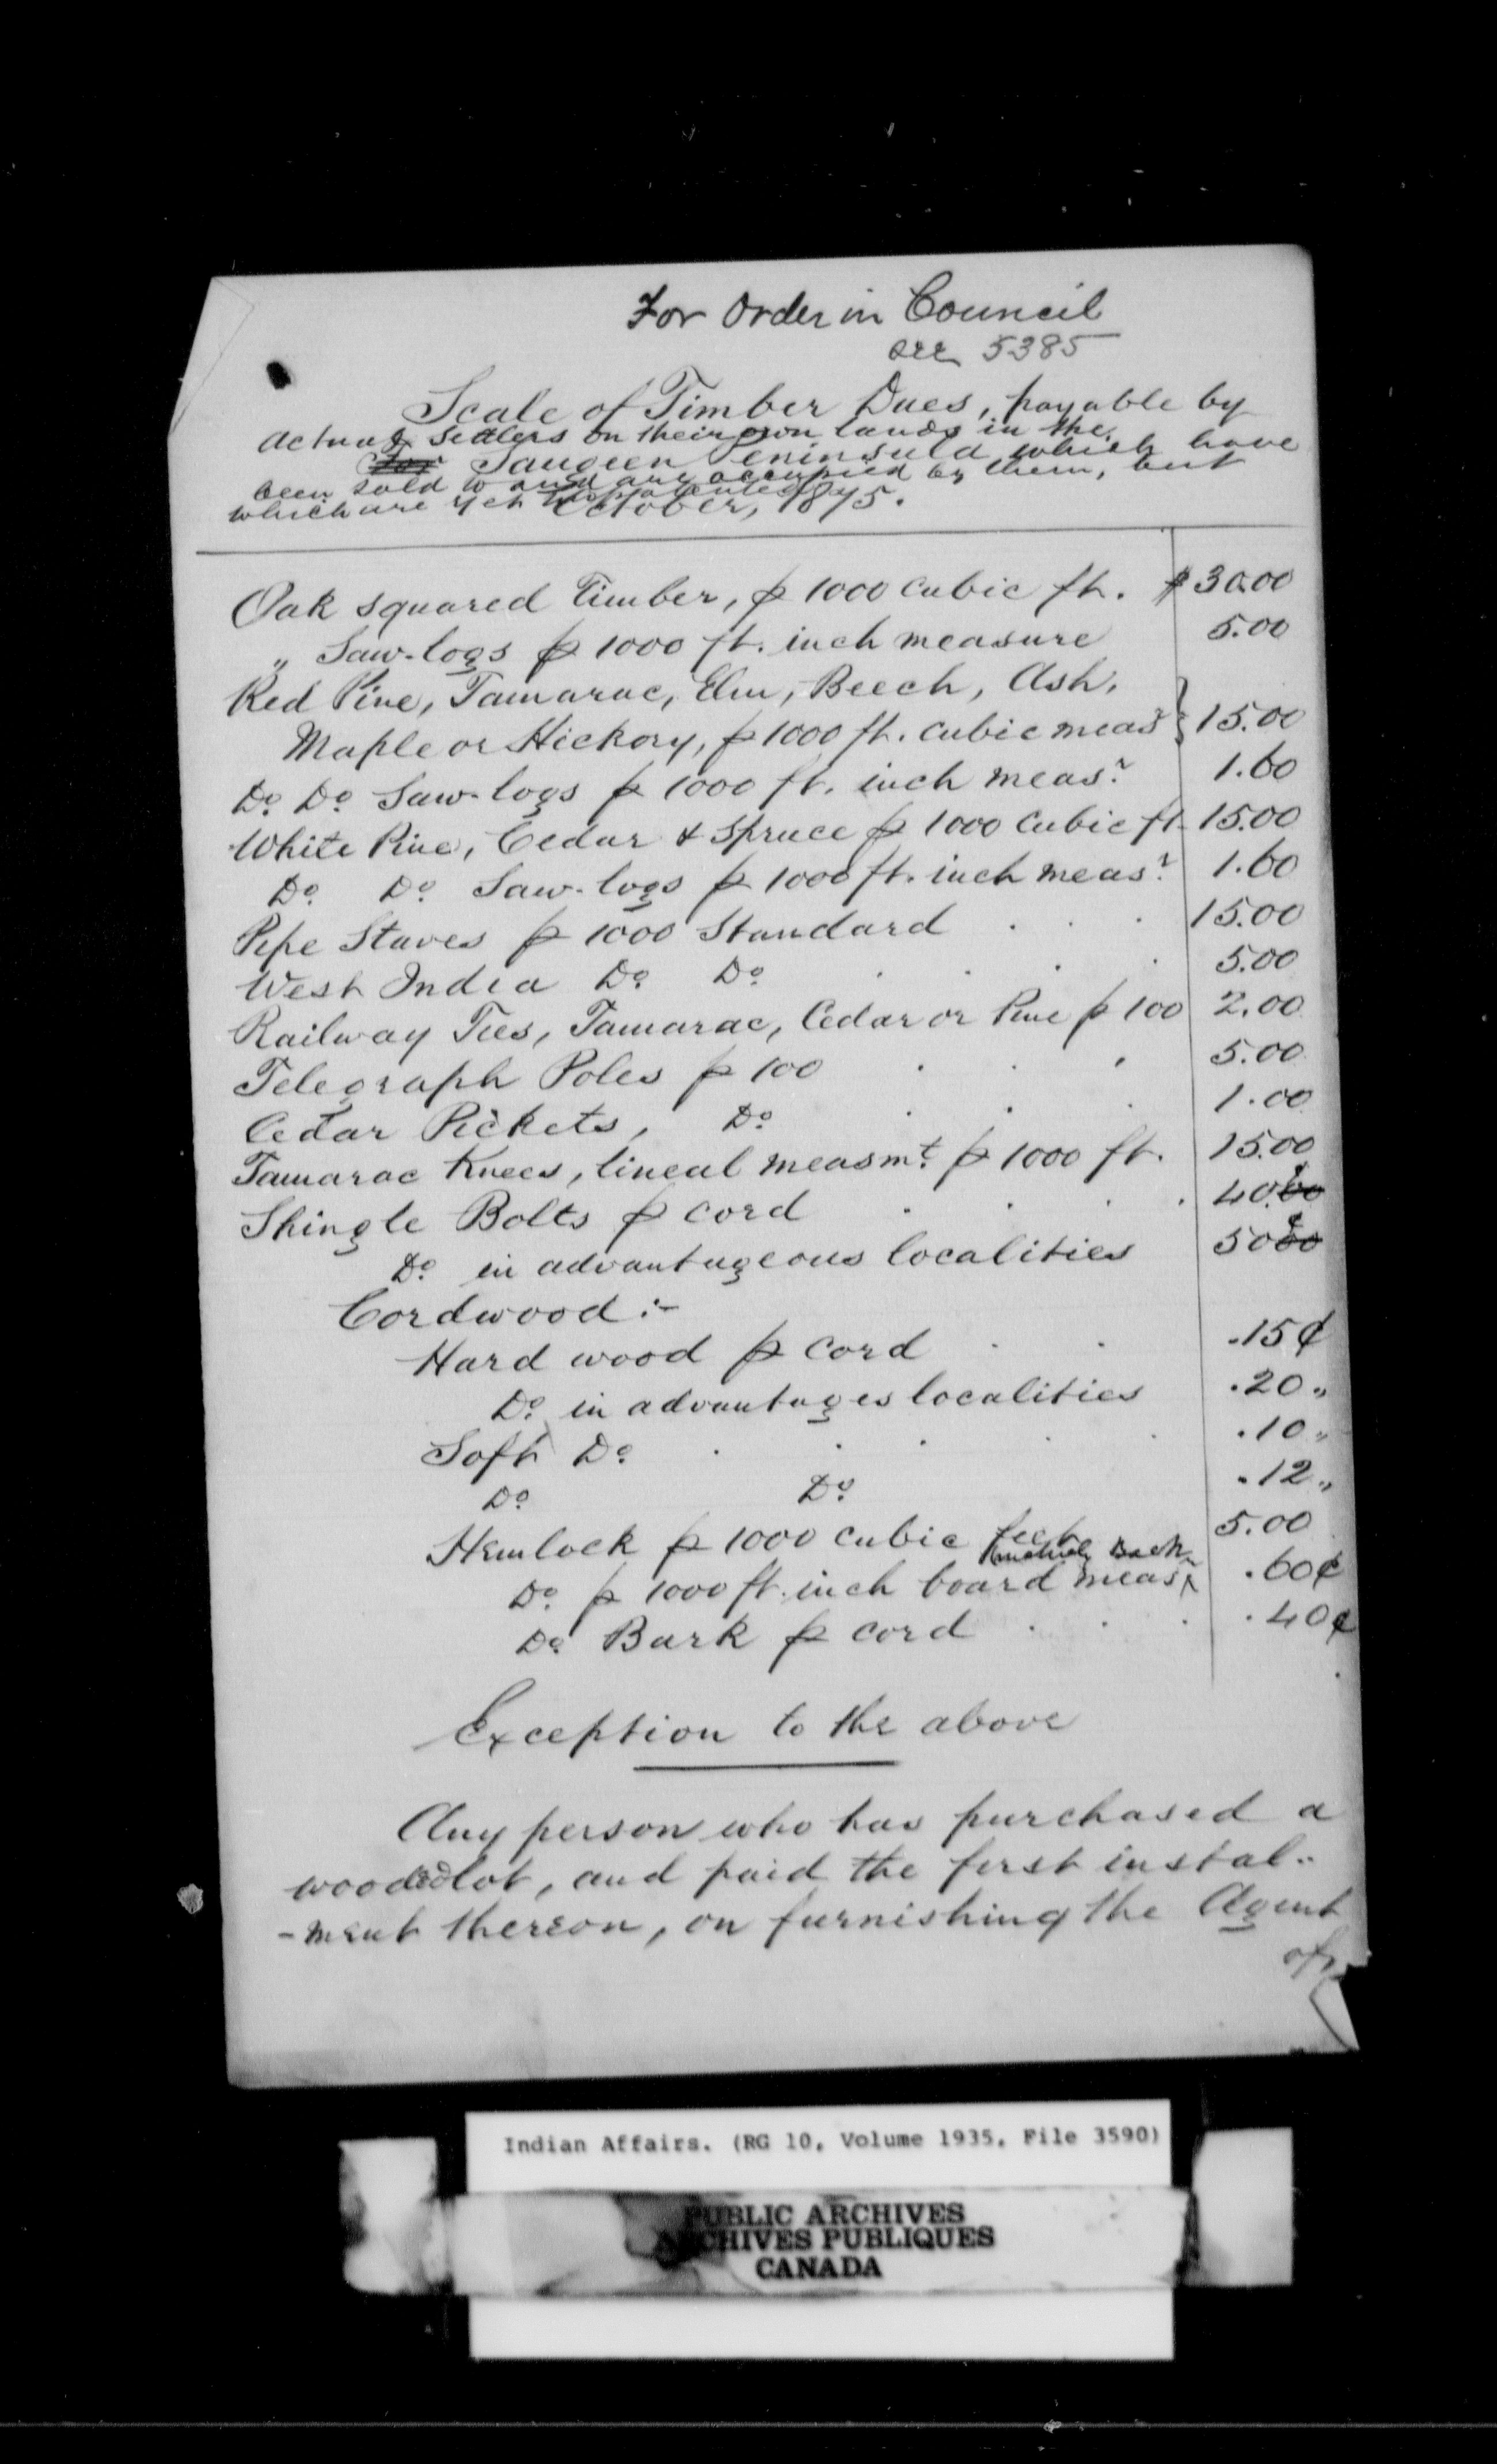 For Order in Council
see 5385
Scale of Timber Dues, payable by
actual settlers on their own lands in the
for Saugeen Peninsula which have
been sold to and are occupied by them, but
which are yet unpatented
October, 1875.
Oak squared Timber, ⅌ 1000 cubic ft. $30.00
„ Saw-logs ⅌ 1000 ft. inch measure 5.00
Red Pine, Tamarac, Elm, Beech, Ash,
Maple or Hickory, ⅌ 1000 ft. cubic measr } 15.00
Do. Do. Saw-logs ⅌ 1000 ft. inch meas.r 1.60
White Pine, Cedar & Spruce ⅌ 1000 cubic ft. 15.00
Do. Do. Saw-logs ⅌ 1000 ft. inch meas.r 1.60
Pipe Staves ⅌ 1000 Standard . . . 15.00
West India Do. Do. . . . . 5.00
Railway Ties, Tamarac, Cedar or Pine ⅌ 100 2.00
Telegraph Poles ⅌ 100 . . . 5.00
Cedar Pickets, Do. . . . 1.00
Tamarac Knees, lineal measmt. ⅌ 1000 ft. 15.00
Shingle Bolts ⅌ cord . . . . 40.00 ¢
Do. in advantageous localities 50 00 ¢
Cordwood :-
Hard wood ⅌ cord . . .15 ¢
Do. in advantages localities .20 „
Soft Do. . . . . . .10 „
Do. Do. .12 „
Hemlock ⅌ 1000 cubic feet 5.00
Bark
Do. ⅌ 1000 ft. inch board measr .60¢
Do. Bark ⅌ cord . . . .40¢
Exception to the above
Any person who has purchased a
wooded lot, and paid the first instal-
-ment thereon, on furnishing the Agent
of
Indian Affairs. (RG 10, Volume 1935, File 3590)
PUBLIC ARCHIVES
ARCHIVES PUBLIQUES
CANADA